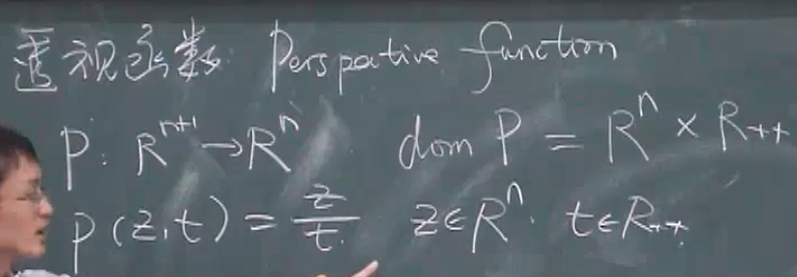 透视函数: Perspective function
P: R^{n+1} → R^n  dom P = R^n × R_{++}
P(z,t) = z/t  z∈R^n. t∈R_{++}